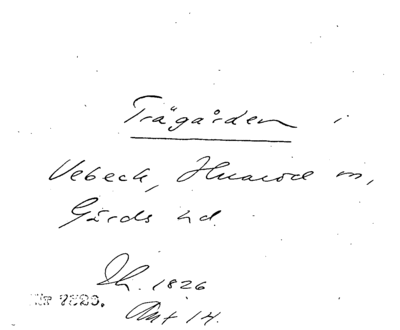 Trägården i
Vebeck, Huaröd sn,
Gärds hd
Ih. 1826
Nr 7326.
Akt 14.